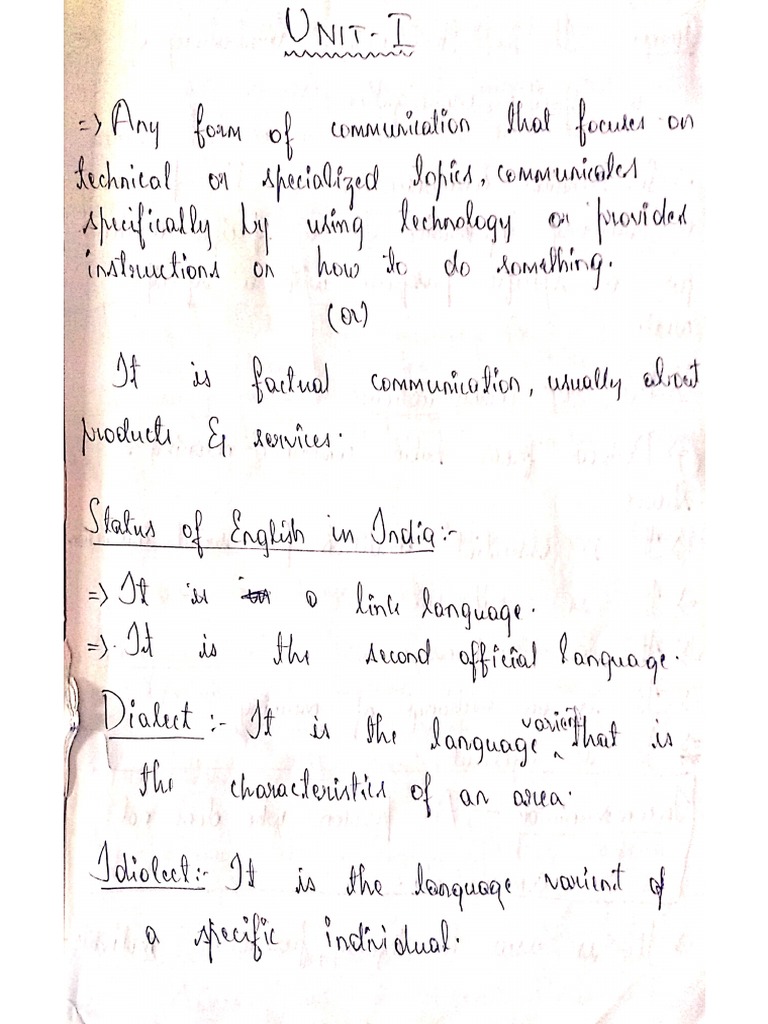 UNIT-I
=> Any form of communication that focuses on
technical or specialized topics, communicates
specifically by using technology or provides
instructions on how to do something.
(or)
It is factual communication, usually about
products & services.
Status of English in India:-
=> It is a link language.
=> It is the second official language.
Dialect :- It is the language varient that is
the characteristics of an area.
Idiolect:- It is the language varient of
a specific individual.